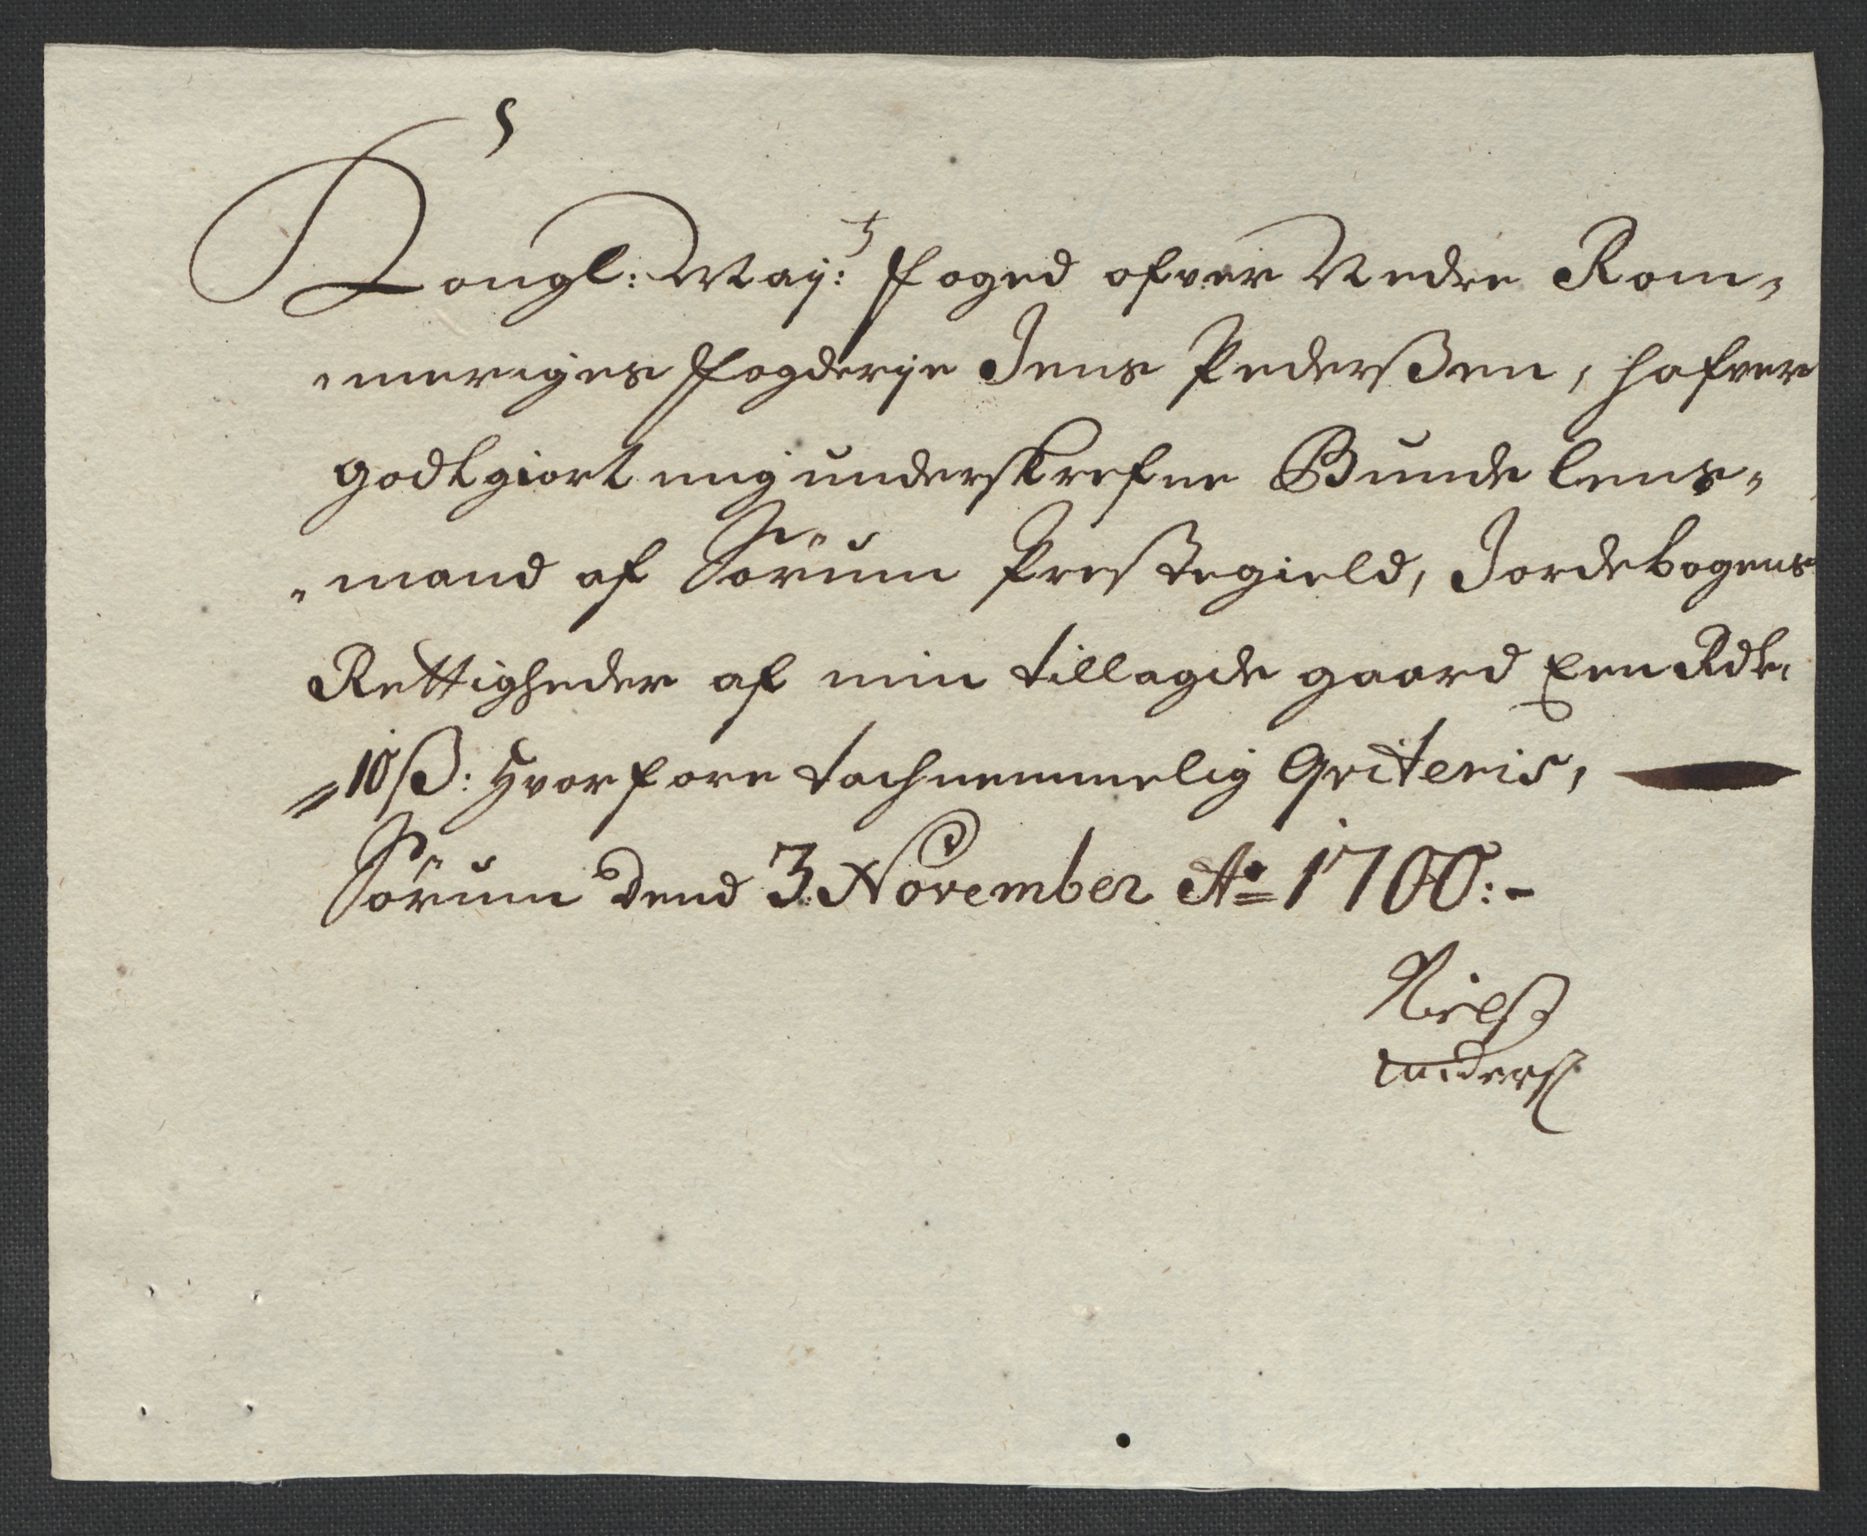 Kongl: May:tz Foged ofver Nedre Rom-
-meriges Fogderje Jens Pederßen, hafver
godtgiort mig underskrefne Bunde lens-
-mand af Sörum Preßtegield, Jordebogens
Rettigheder af min tillagde gaard Een Rdr,
10 ß: Hvorfore tachnemmelig Qviteris,
Sörum dend 3. November Ao 1700:-
Nielß
Anderß